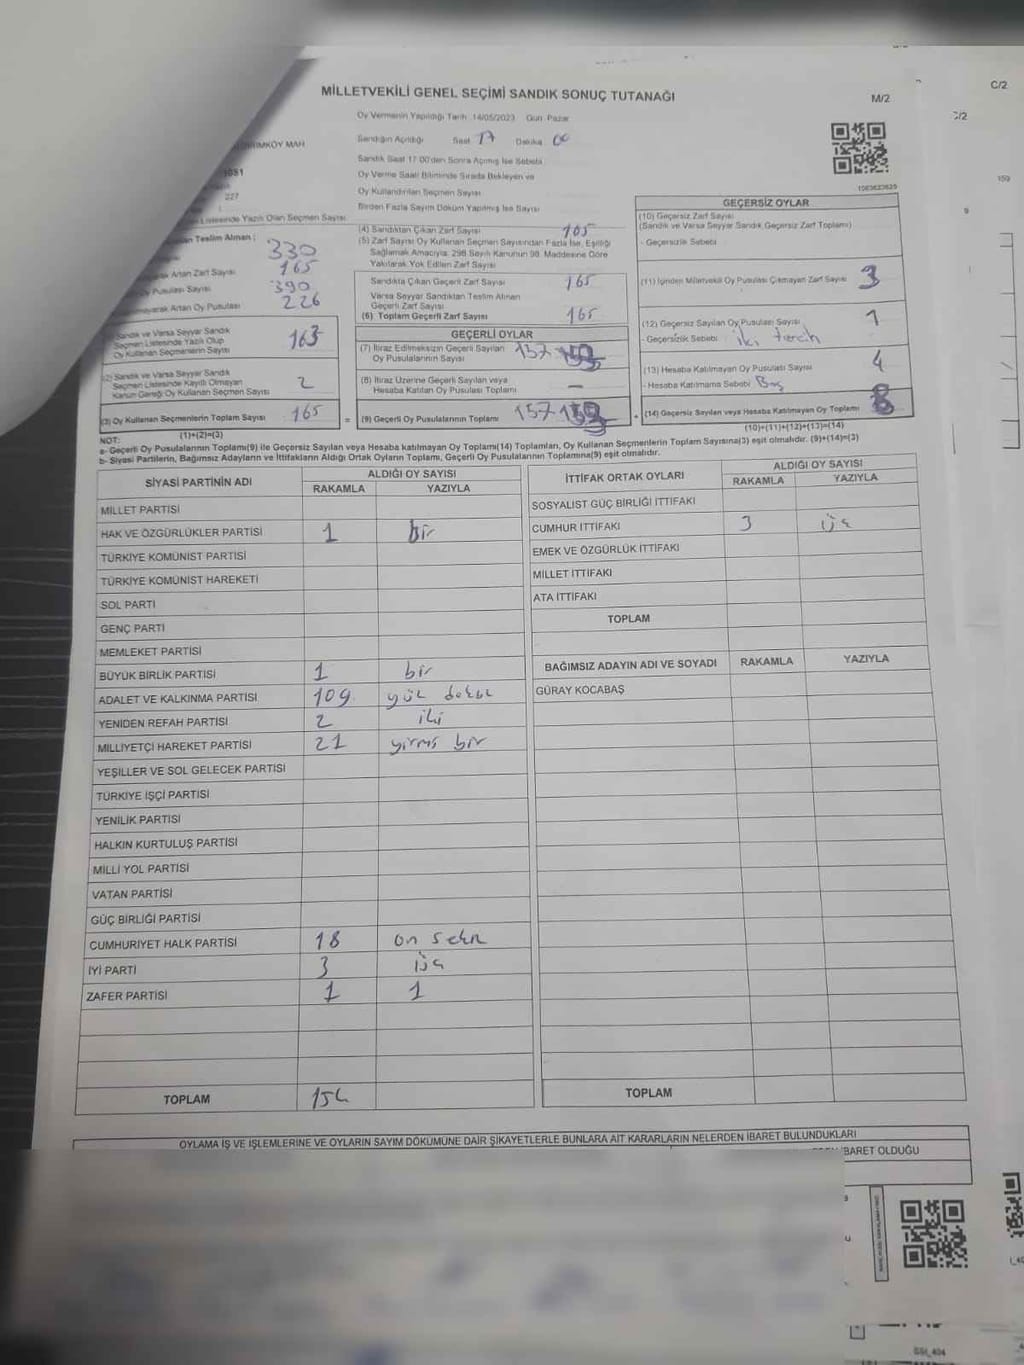 C/2
MİLLETVEKİLİ GENEL SEÇİMİ SANDIK SONUÇ TUTANAĞI
M/2
Oy Vermenin Yapıldığı Tarih 14/05/2023 Gün Pazar
Sandığın Açıldığı Saat 17 Dakika 00
Sandık Saat 17:00'den Sonra Açılmış İse Sebebi
Oy Verme Saati Bitiminde Sırada Bekleyen ve
Oy Kullandırılan Seçmen Sayısı
Birden Fazla Sayım Döküm Yapılmış İse Sayısı
MKÖY MAH
1081
227
Listesinde Yazılı Olan Seçmen Sayısı
Teslim Alınan :
330
Artan Zarf Sayısı 165
Pusulası Sayısı 390
Artan Oy Pusulası 226
Sandık ve Varsa Seyyar Sandık
Seçmen Listesinde Yazılı Olup
Oy Kullanan Seçmenlerin Sayısı 163
(2) Sandık ve Varsa Seyyar Sandık
Seçmen Listesinde Kayıtlı Olmayan
Kanun Gereği Oy Kullanan Seçmen Sayısı 2
(3) Oy Kullanan Seçmenlerin Toplam Sayısı 165
(1)+(2)=(3)
(4) Sandıktan Çıkan Zarf Sayısı 165
(5) Zarf Sayısı Oy Kullanan Seçmen Sayısından Fazla İse, Eşitliği
Sağlamak Amacıyla, 298 Sayılı Kanunun 98. Maddesine Göre
Yakılarak Yok Edilen Zarf Sayısı
Sandıkta Çıkan Geçerli Zarf Sayısı 165
Varsa Seyyar Sandıktan Teslim Alınan
Geçerli Zarf Sayısı
(6) Toplam Geçerli Zarf Sayısı 165
GEÇERLİ OYLAR
(7) İtiraz Edilmeksizin Geçerli Sayılan
Oy Pusulalarının Sayısı 157
(8) İtiraz Üzerine Geçerli Sayılan veya
Hesaba Katılan Oy Pusulaları Toplamı –
= (9) Geçerli Oy Pusulalarının Toplamı 157
1063623629
GEÇERSİZ OYLAR
(10) Geçersiz Zarf Sayısı
(Sandık ve Varsa Seyyar Sandık Geçersiz Zarf Toplamı)
- Geçersizlik Sebebi
(11) İçinden Milletvekili Oy Pusulası Çıkmayan Zarf Sayısı 3
(12) Geçersiz Sayılan Oy Pusulası Sayısı 1
- Geçersizlik Sebebi iki tercih
(13) Hesaba Katılmayan Oy Pusulası Sayısı 4
- Hesaba Katılmama Sebebi Boş
+ (14) Geçersiz Sayılan veya Hesaba Katılmayan Oy Toplamı 8
(10)+(11)+(12)+(13)=(14)
NOT:
a- Geçerli Oy Pusulalarının Toplamı(9) ile Geçersiz Sayılan veya Hesaba katılmayan Oy Toplamı(14) Toplamları, Oy Kullanan Seçmenlerin Toplam Sayısına(3) eşit olmalıdır. (9)+(14)=(3)
b- Siyasi Partilerin, Bağımsız Adayların ve İttifakların Aldığı Ortak Oyların Toplamı, Geçerli Oy Pusulalarının Toplamına(9) eşit olmalıdır.
SİYASİ PARTİNİN ADI ALDIĞI OY SAYISI
RAKAMLA YAZIYLA
MİLLET PARTİSİ
HAK VE ÖZGÜRLÜKLER PARTİSİ 1 bir
TÜRKİYE KOMÜNİST PARTİSİ
TÜRKİYE KOMÜNİST HAREKETİ
SOL PARTİ
GENÇ PARTİ
MEMLEKET PARTİSİ
BÜYÜK BİRLİK PARTİSİ 1 bir
ADALET VE KALKINMA PARTİSİ 109 yüz dokuz
YENİDEN REFAH PARTİSİ 2 iki
MİLLİYETÇİ HAREKET PARTİSİ 21 yirmi bir
YEŞİLLER VE SOL GELECEK PARTİSİ
TÜRKİYE İŞÇİ PARTİSİ
YENİLİK PARTİSİ
HALKIN KURTULUŞ PARTİSİ
MİLLİ YOL PARTİSİ
VATAN PARTİSİ
GÜÇ BİRLİĞİ PARTİSİ
CUMHURİYET HALK PARTİSİ 18 on sekiz
İYİ PARTİ 3 üç
ZAFER PARTİSİ 1 1
TOPLAM 154
İTTİFAK ORTAK OYLARI ALDIĞI OY SAYISI
RAKAMLA YAZIYLA
SOSYALİST GÜÇ BİRLİĞİ İTTİFAKI
CUMHUR İTTİFAKI 3 üç
EMEK VE ÖZGÜRLÜK İTTİFAKI
MİLLET İTTİFAKI
ATA İTTİFAKI
TOPLAM
BAĞIMSIZ ADAYIN ADI VE SOYADI RAKAMLA YAZIYLA
GÜRAY KOCABAŞ
TOPLAM
OYLAMA İŞ VE İŞLEMLERİNE VE OYLARIN SAYIM DÖKÜMÜNE DAİR ŞİKAYETLERLE BUNLARA AİT KARARLARIN NELERDEN İBARET BULUNDUKLARI
İBARET OLDUĞU